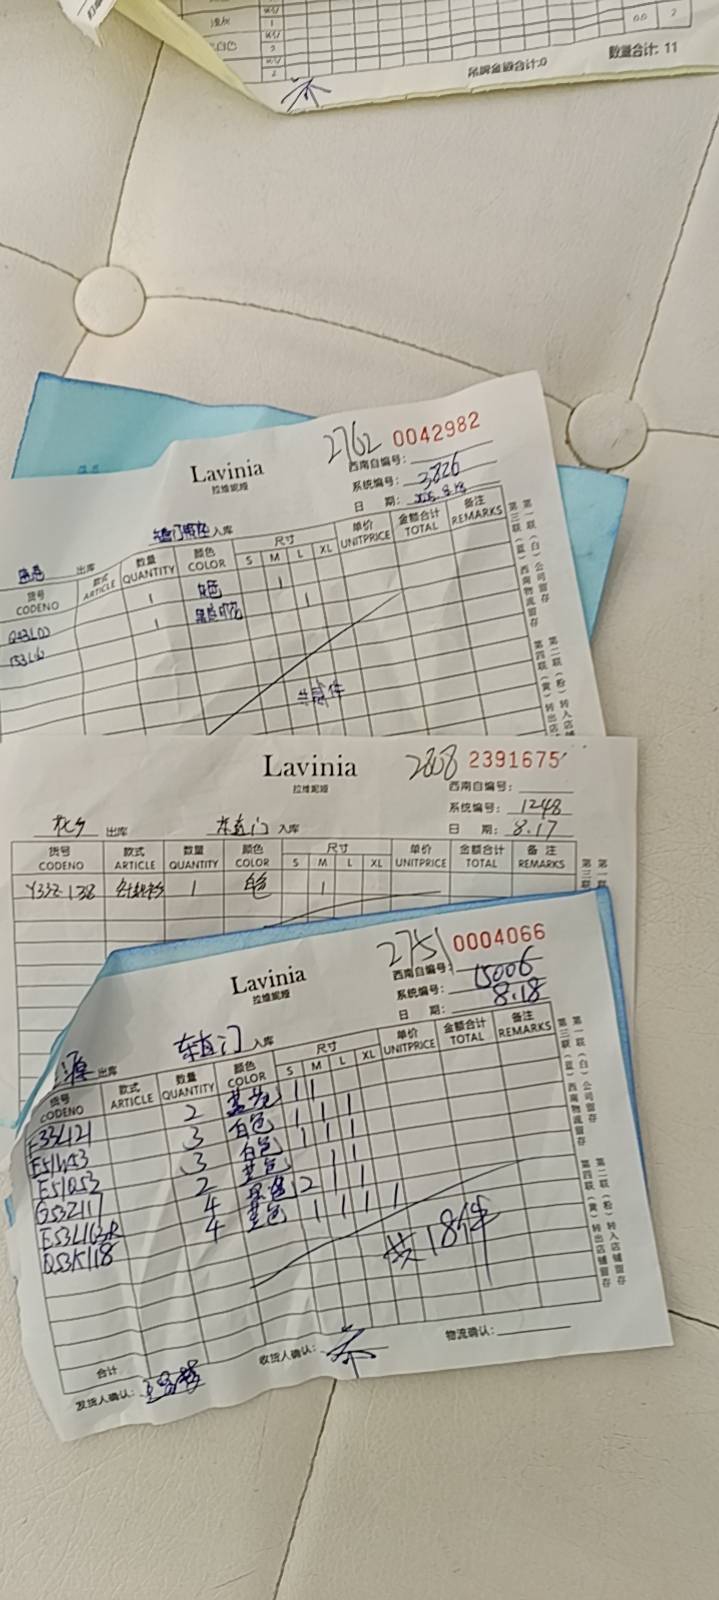 吊牌金额合计:0
数量合计: 11
Lavinia
拉维妮娅
2762 0042982
西南自编号:
系统编号: 3826
日 期:
出库
入库
货号 CODENO 款式 ARTICLE 数量 QUANTITY 颜色 COLOR 尺寸 S M L XL 单价 UNITPRICE 金额合计 TOTAL 备注 REMARKS
1 灰色 1
1 黑底印花 1
共贰件
第一联(白)公司留存
第三联(蓝)西南物流留存
第二联(粉)转入店
第四联(黄)转出店铺
Lavinia
拉维妮娅
2808 2391675
西南自编号:
系统编号: 1248
日 期: 8.17
出库 东直门 入库
货号 CODENO 款式 ARTICLE 数量 QUANTITY 颜色 COLOR 尺寸 S M L XL 单价 UNITPRICE 金额合计 TOTAL 备注 REMARKS
Y33Z-138 1 白色 1
第一联(白)
第三联
Lavinia
拉维妮娅
2751 0004066
西南自编号:
系统编号: 15006
日 期: 8.18
出库 东直门 入库
货号 CODENO 款式 ARTICLE 数量 QUANTITY 颜色 COLOR 尺寸 S M L XL 单价 UNITPRICE 金额合计 TOTAL 备注 REMARKS
F33L121 2 1 1
3 白色 1 1 1
3 白色 1 1 1
G53Z117 2 蓝色 1 1
4 黑色 2 1 1
Q53K118 4 蓝色 1 1 1 1
共18件
合计
发货人确认:
收货人确认:
物流确认:
第一联(白)公司留存
第三联(蓝)西南物流留存
第二联(粉)转入店铺留存
第四联(黄)转出店铺留存